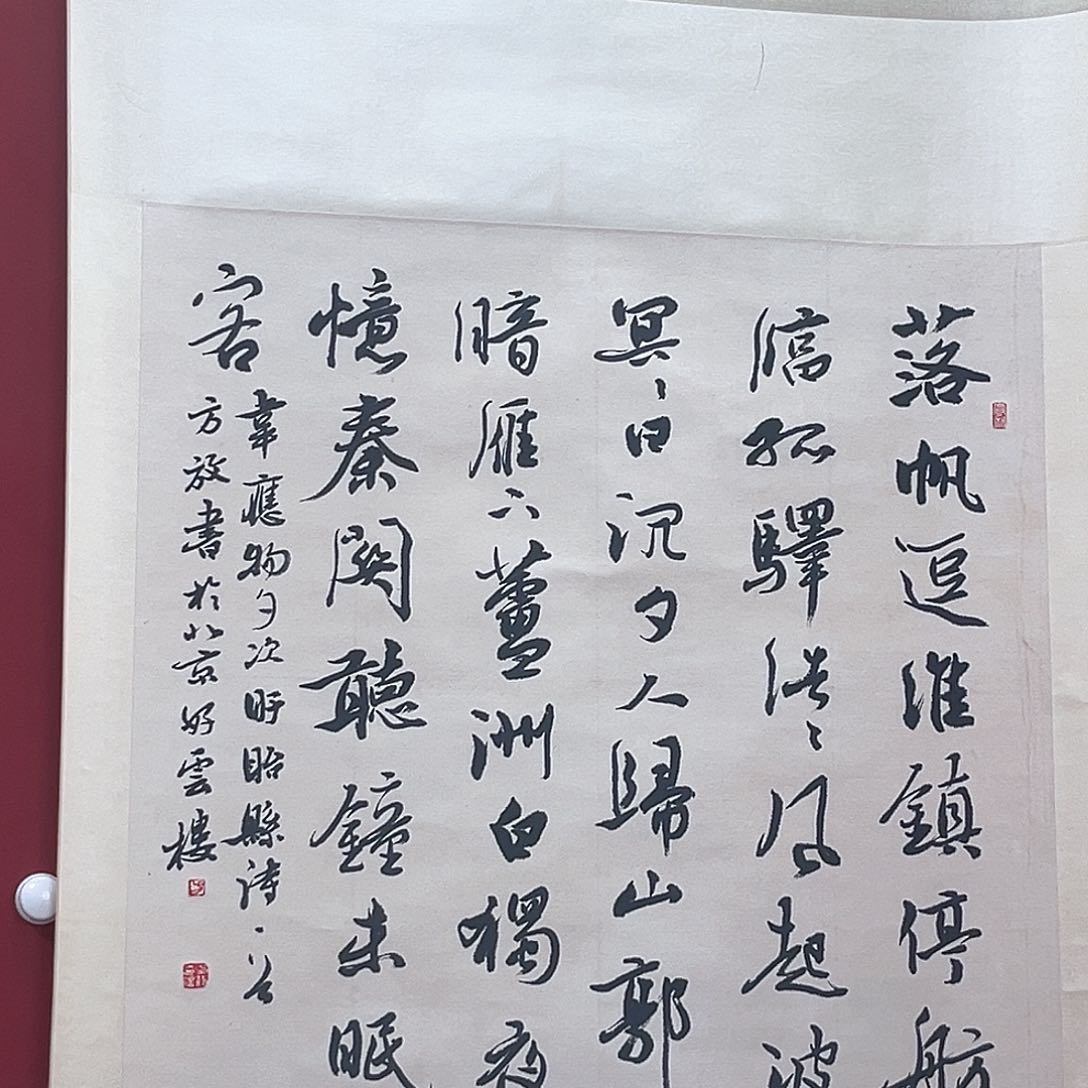 落帆逗淮鎮停舫
臨孤驛浩〻風起波
冥〻日沉夕人歸山郭
暗雁下蘆洲白獨夜
憶秦關聽鐘未眠
客
韋應物夕次盱眙縣詩一首
方放書於北京好雲樓